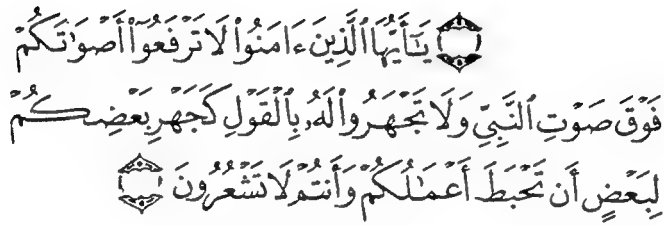 ﴿ يَـٰٓأَيُّهَا ٱلَّذِينَ ءَامَنُوا۟ لَا تَرْفَعُوٓا۟ أَصْوَٰتَكُمْ
فَوْقَ صَوْتِ ٱلنَّبِىِّ وَلَا تَجْهَرُوا۟ لَهُۥ بِٱلْقَوْلِ كَجَهْرِ بَعْضِكُمْ
لِبَعْضٍ أَن تَحْبَطَ أَعْمَـٰلُكُمْ وَأَنتُمْ لَا تَشْعُرُونَ ﴾